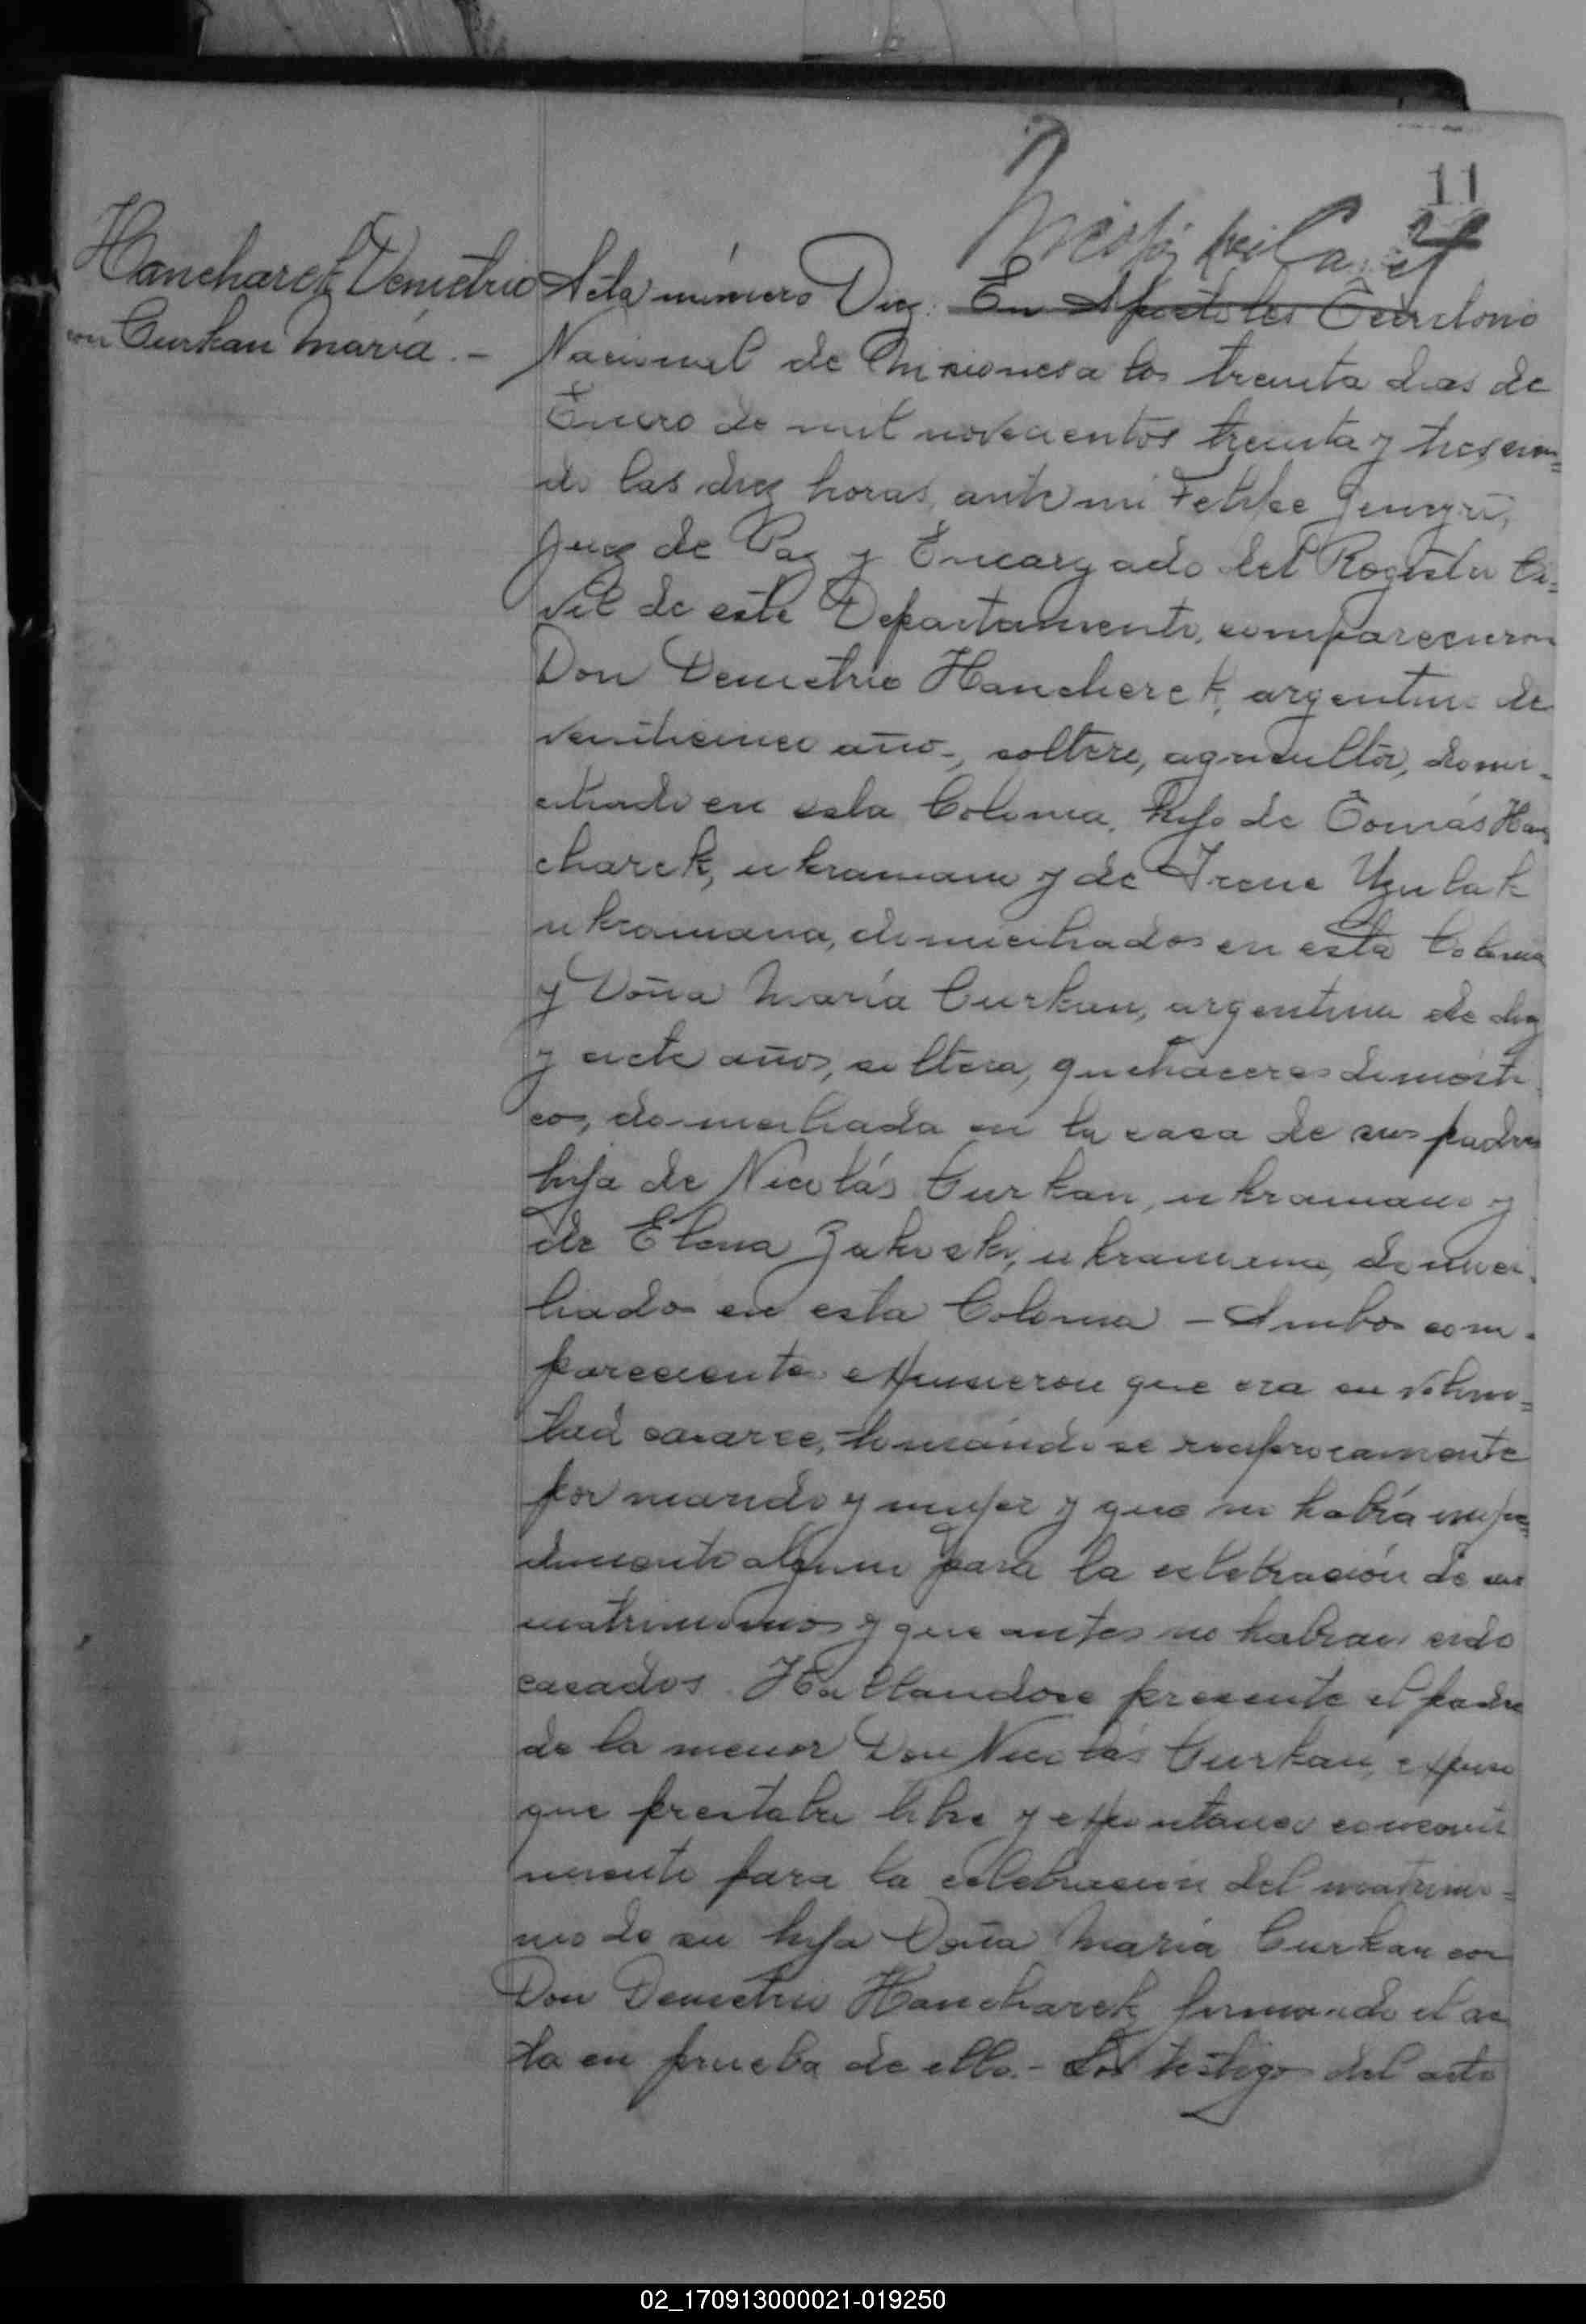 11
Hancharek Demetrio
con Curkan María. -
Acta número Diez. En Apóstoles Territorio
Nacional de Misiones a los treinta dias de
Enero de mil novecientos treinta y tres, sien=
do las diez horas, ante mi Felipe
Juez de Paz y Encargado del Registro Ci=
vil de este Departamento, comparecieron
Don Demetrio Hancherek, argentino de
veinticinco años, soltero, agricultor, domi-
ciliado en esta Colonia, hijo de Tomás Han
charek, ukraniano y de Irene Uzulak
ukraniana, domiciliados en esta Colonia
y Doña María Curkan, argentina de diez
y siete años, soltera, quehaceres domésti
cos, domiciliada en la casa de sus padres
hija de Nicolás Curkan, ukraniano y
de Elena Zukoski, ukraniana, domici-
liados en esta Colonia - Ambos com-
parecientes expusieron que era su volun=
tad casarse, tomándose reciprocamente
por marido y mujer y que no había impe=
dimento alguno para la celebración de su
matrimonio y que antes no habian sido
casados. Hallandose presente el padre
de la menor Don Nicolás Curkan, expuso
que prestaba libre y expontaneo consenti
miento para la celebración del matrimo=
nio de su hija Doña María Curkan con
Don Demetrio Hancharek, firmando el ac
ta en prueba de ello.- Los testigos del acto
02_170913000021-019250